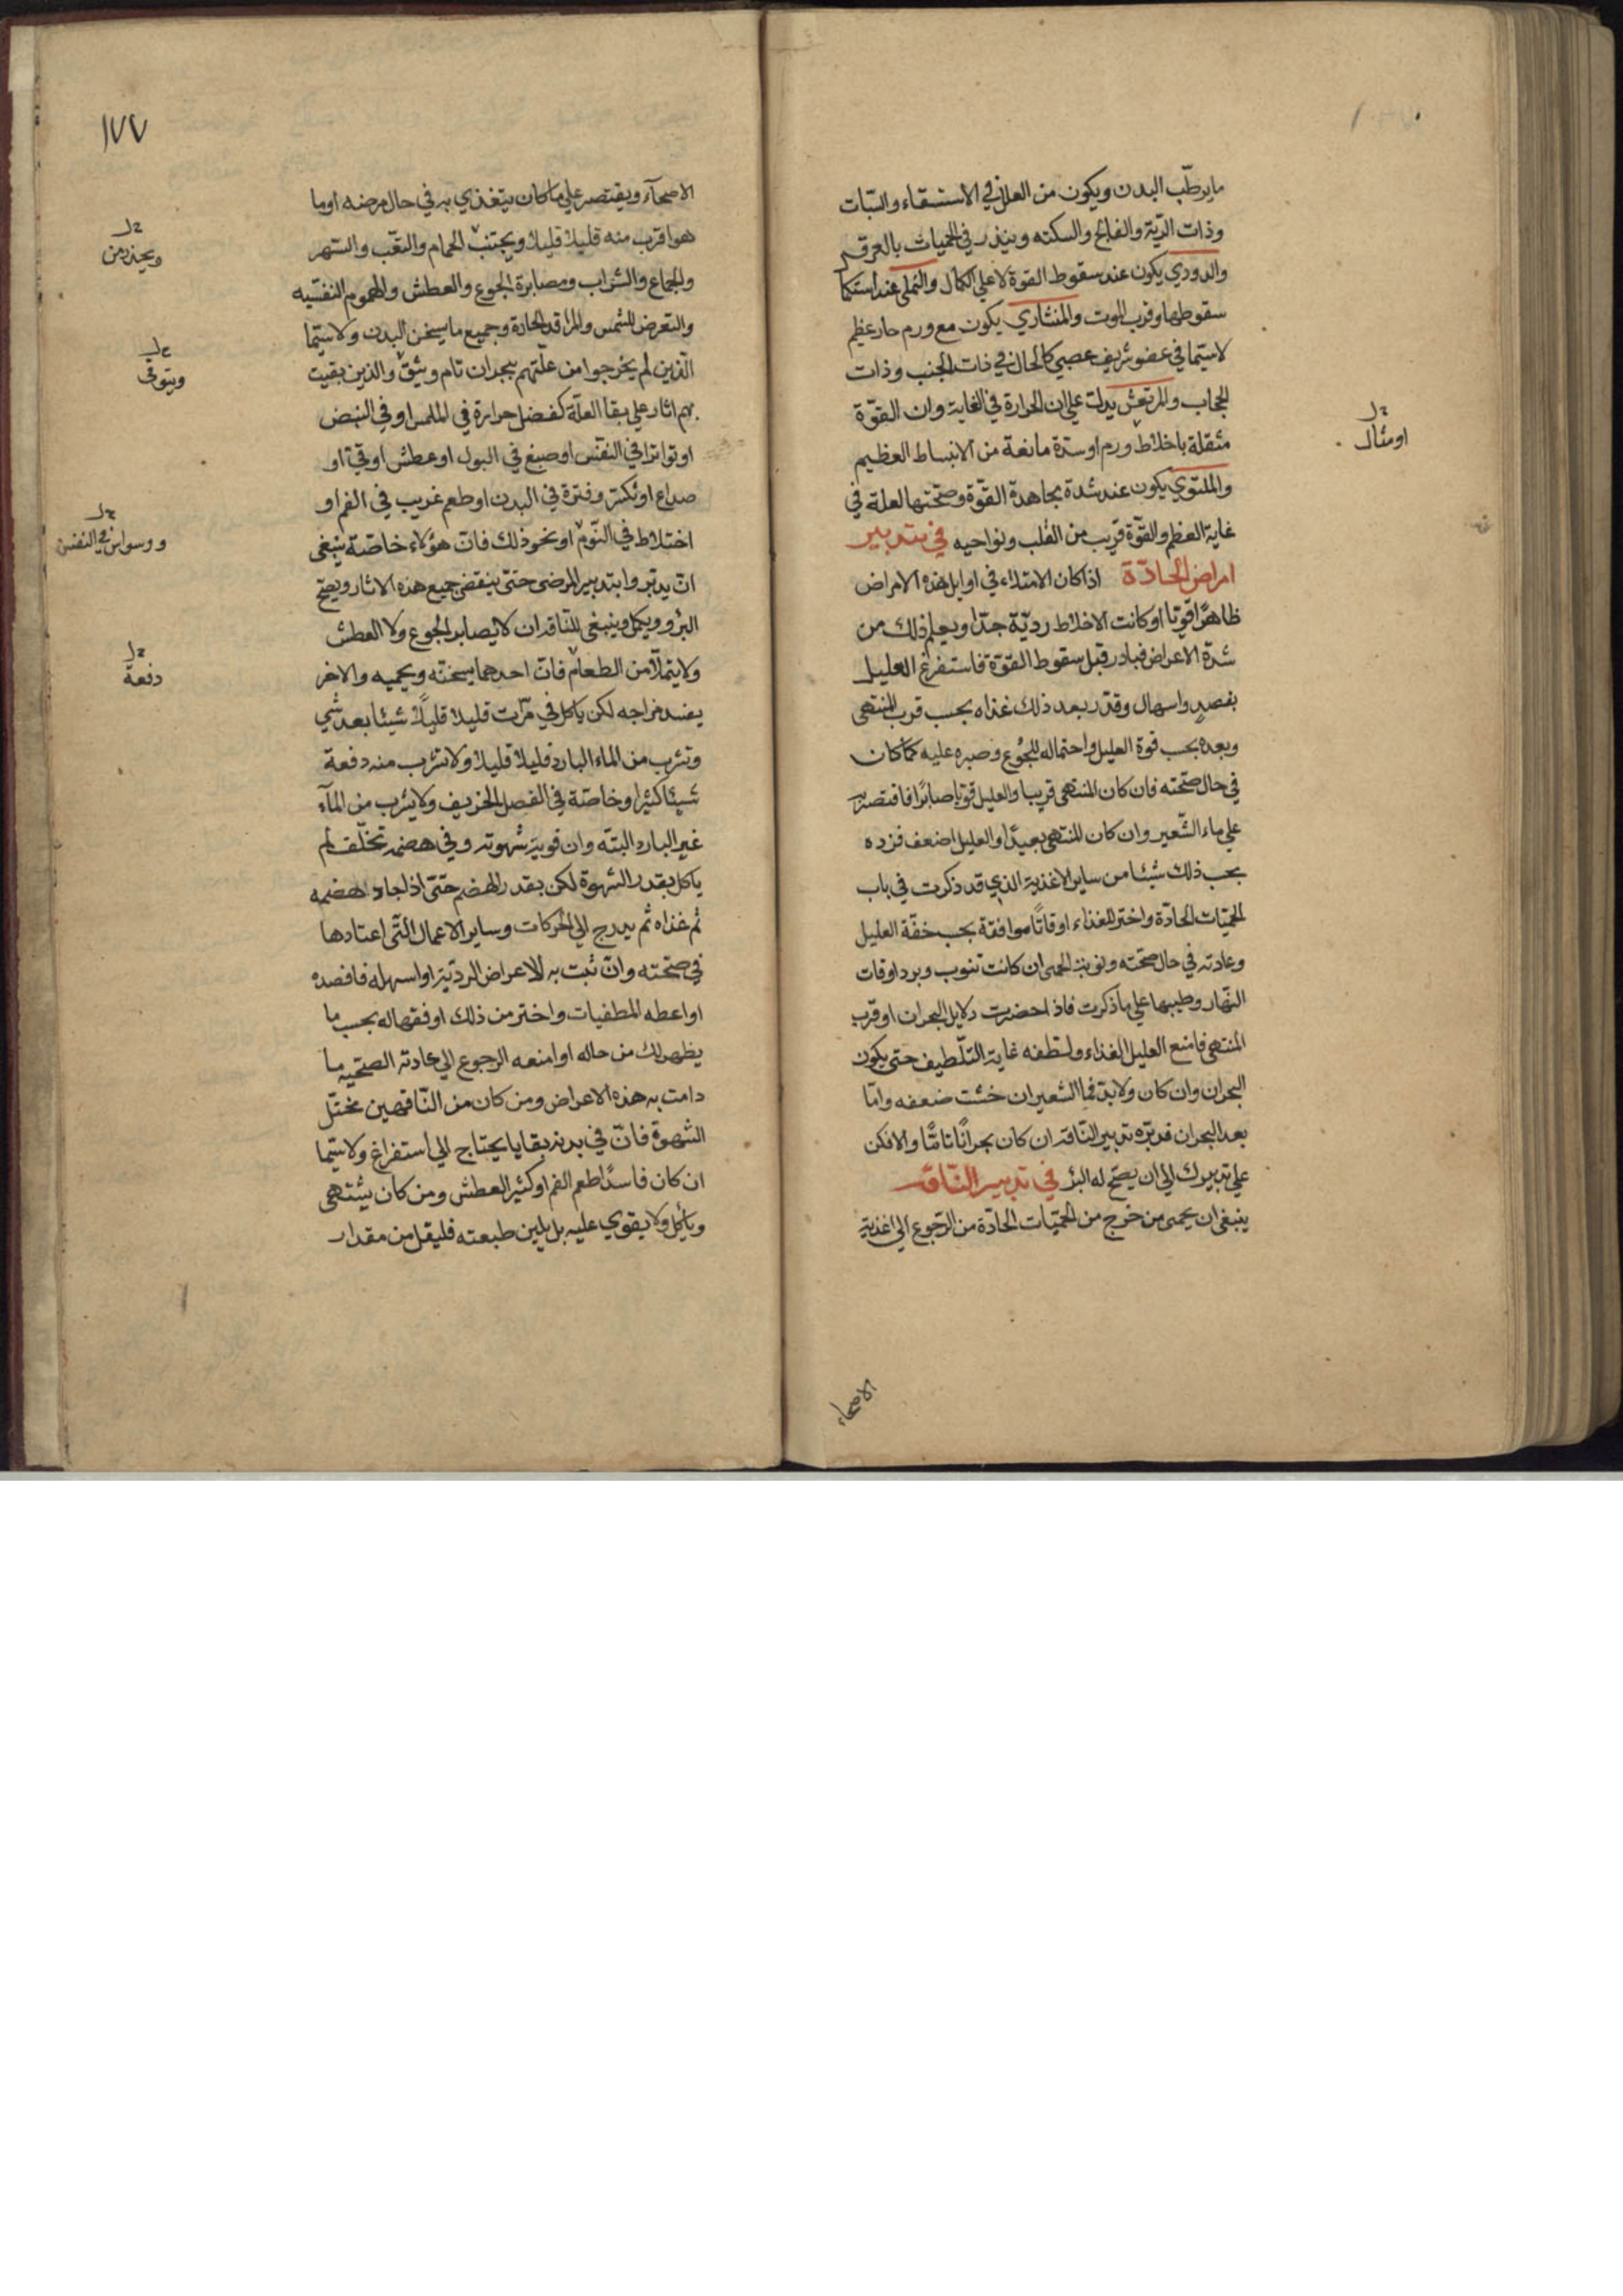 ما يرطّب البدن ويكون من العلل في الاستسقاء والسّبات
وذات الريّة والفالج والسكته وينذر في الحميات بالعرق
والدودي يكون عند سقوط القوة لا علي الكمال والنملي عند استكما
سقوطها وقرب الموت والمنشاري يكون مع ورم حار عظيم
لا سيّما في عضو شريف عصبي كالحال في ذات الجنب وذات
الحجاب والمرتعش يدلّ علي ان الحرارة في الغاية وان القوّة
مثقلة باخلاط ورم او سدّة مانعة من الانبساط العظيم
والملتوي يكون عند شدة مجاهدة القوّة وصحّتها لعلة في
غاية العظم والقوّة قريب من القلب ونواحيه في تدبير
امراض الحادّة اذا كان الامتلاء في اوايل هذه الامراض
ظاهرًا قويّا او كانت الاخلاط رديّة جدّا ويعلم ذلك من
شدّة الاعراض فبادر قبل سقوط القوّة فاستفرغ العليل
بفصدٍ واسهال وقدّر بعد ذلك غذاه بحسب قرب المنتهى
وبعده بحسب قوة العليل واحتماله للجُوع وصبره عليه كما كان
في حال صحّته فان كان المنتهى قريبا والعليل قويّا صابرًا فاقتصر به
علي ماء الشّعير وان كان المنتهى بعيدًا والعليل اضعف فزده
بحسب ذلك شيئا من ساير الاغذية الذي قد ذكرت في باب
الحميّات الحادّة واختر للغذاء اوقاتًا موافقة بحسب خفّة العليل
وعادته في حال صحّته ونوبة الحمى ان كانت تنوب وبرد اوقات
النّهار وطيبها علي ما ذكرت فاذا حضرت دلايل البحران او قرب
المنتهى فامنع العليل الغذاء ولطفه غاية التلّطيف حتى يكون
البحران وان كان ولا بدّ فماء الشعير ان خشت ضعفه وامّا
بعد البحران فدبّره تدبير النّاقه ان كان بحرانًا تامّا والا فكن
علي تدبيرك الي ان يصحّ له البرؤ في تدبير النّاقه
ينبغي ان يحمى من خرج من الحميّات الحادّة من الرّجوع الي اغذية
او مثال
الاصحاء
١٧٧
الاصحآء ويقتصر علي ما كان يتغذي به في حال مرضه او ما
هو اقرب منه قليلا قليلا ويجتنب الحمام والتعّب والسّهر
والجماع والشراب ومصابرة الجوع والعطش والهموم النفسّيه
والتعرض للشمس والمراقد الحارة وجميع ما يسخن البدن ولا سيّما
الّذين لم يخرجوا من علّتهم ببحران تام ويثق والذين بقيت
بهم اثار علي بقا العلّة كفضل حرارة في الملمس او في النبض
او تواترا في النفّس او صبغ في البول او عطش او قيّ او
صداع او تكسّر وفترة في البدن او طعم غريب في الفم او
اختلاط في النّوم او نحو ذلك فانّ هؤلاء خاصّة ينبغي
ان يدبّروا بتدبير المرضى حتىّ ينقضي جميع هذه الاثار ويصحّ
البرؤ ويكمل وينبغي للنّاقه ان لا يصابر الجوع ولا العطش
ولا يتملّا من الطعام فانّ احدهما يسخنّه ويحميه والاخر
يفسد مزاجه لكن ياكل في مرّات قليلا قليلًا شيئا بعد شي
وتشرب من الماء البارد قليلا قليلا ولا تشرب منه دفعة
شيئا كثيرا وخاصّة في الفصل الخريف ولا يشرب من المآء
غير البارد البتّه وان قويت شهوته وفي هضمه تخلّف لم
ياكل بقدر الشهوة لكن بقدر الهضم حتىّ اذا جاد هضمه
ثم غذاه ثم يدرج الي الحركات وساير الاعمال التّي اعتادها
في صحّته وان ثبت به الاعراض الرديّة او اسهله فافصده
او اعطه المطفيات واختر من ذلك اوفقها له بحسب ما
يظهر لك من حاله او امنعه الرجوع الي عادته الصحّيه ما
دامت به هذه الاعراض ومن كان من النّاقهين مختّل
الشهوة فانّ في بدنه بقايا يحتاج الي استفراغ ولا سيّما
ان كان فاسدًا طعم الفم او كثير العطش ومن كان يشتهى
وياكل ولا يقوي عليه بل يلين طبعته فليقلل من مقدار
ويحذر من
ويتوقى
ووسواس في النفس
دفعة